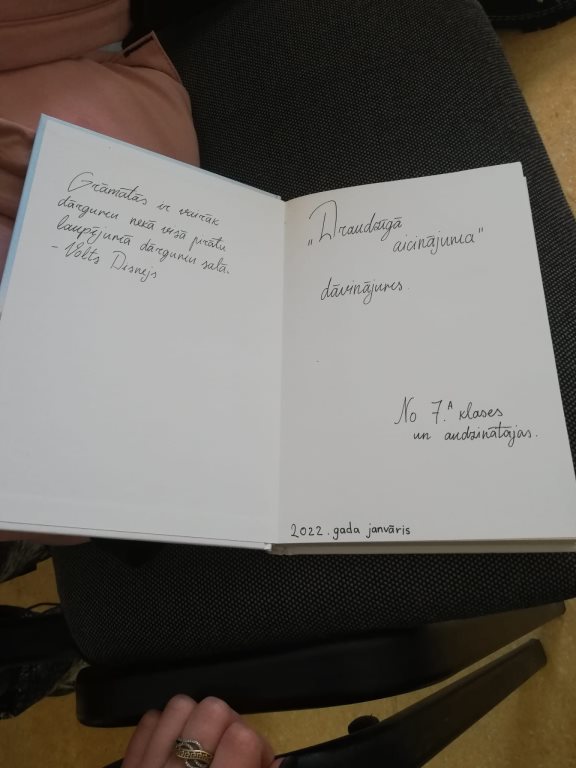 Grāmatās ir vairāk
dārgumu nekā visā pirātu
laupījumā dārgumu salā.
- Volts Disnejs
„Draudzīgā
aicinājuma"
dāvinājums.
No 7.A klases
un audzinātājas.
2022. gada janvāris